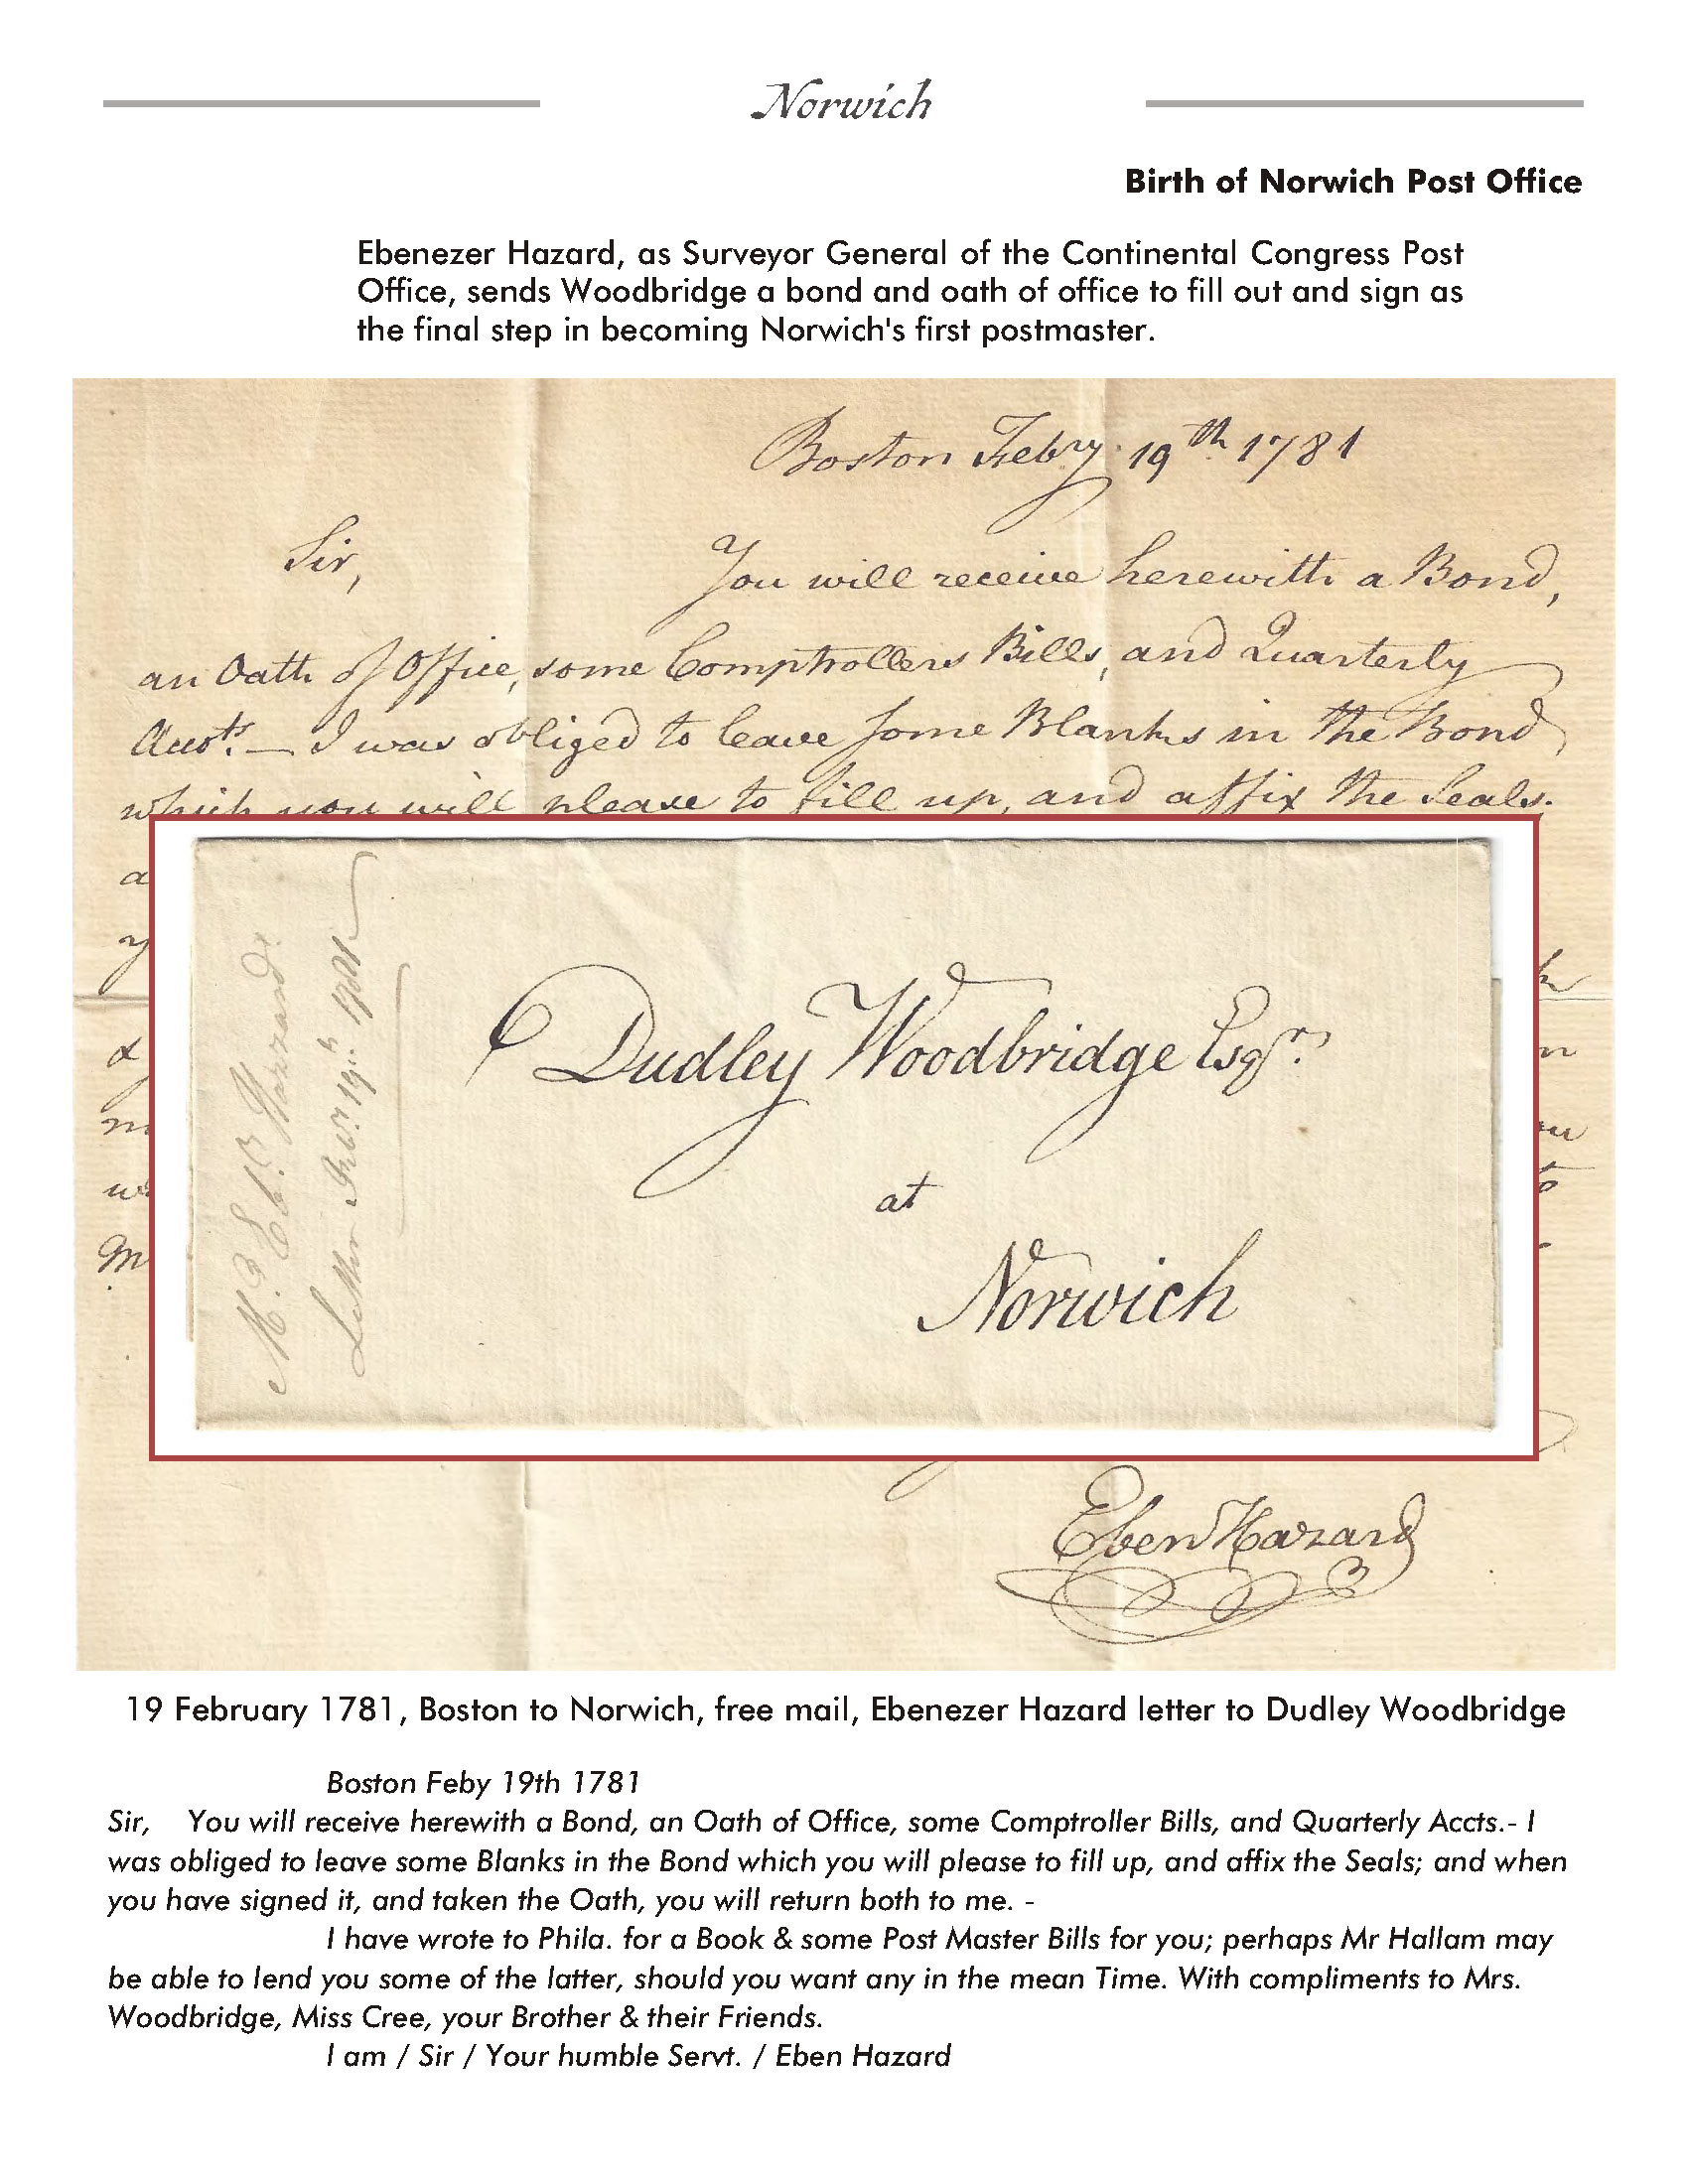 Norwich
Birth of Norwich Post Office
Ebenezer Hazard, as Surveyor General of the Continental Congress Post
Office, sends Woodbridge a bond and oath of office to fill out and sign as
the final step in becoming Norwich's first postmaster.
Boston Feby. 19th 1781
Sir,
You will receive herewith a Bond,
an Oath of Office, some Comptrollers Bills, and Quarterly
Accts. — I was obliged to leave some Blanks in the Bond
which you will please to fill up, and affix the Seals.
Mr. Ebr. Hazzard
Letter Feby. 19th 1781
Dudley Woodbridge Esqr.
at
Norwich
Eben Hazard
19 February 1781, Boston to Norwich, free mail, Ebenezer Hazard letter to Dudley Woodbridge
Boston Feby 19th 1781
Sir, You will receive herewith a Bond, an Oath of Office, some Comptroller Bills, and Quarterly Accts.- I
was obliged to leave some Blanks in the Bond which you will please to fill up, and affix the Seals; and when
you have signed it, and taken the Oath, you will return both to me. -
I have wrote to Phila. for a Book & some Post Master Bills for you; perhaps Mr Hallam may
be able to lend you some of the latter, should you want any in the mean Time. With compliments to Mrs.
Woodbridge, Miss Cree, your Brother & their Friends.
I am / Sir / Your humble Servt. / Eben Hazard